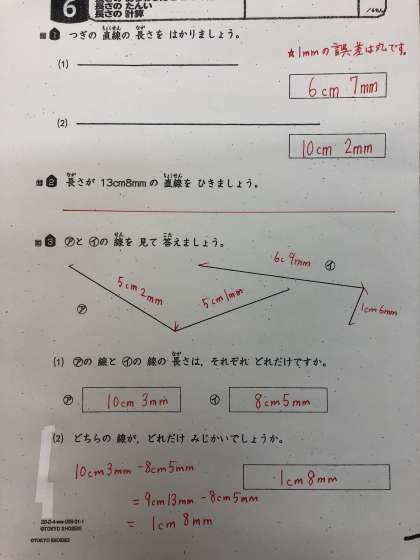 6
長さの たんい
長さの 計算
問1 つぎの 直線の 長さを はかりましょう。
★1mmの誤差は丸です。
(1)
6cm 7mm
(2)
10cm 2mm
問2 長さが 13cm8mmの 直線を ひきましょう。
問3 ㋐と ㋑の 線を 見て 答えましょう。
6c 9mm
㋑
5cm 2mm
5cm 1mm
1cm6mm
㋐
(1) ㋐の 線と ㋑の 線の 長さは，それぞれ どれだけですか。
㋐ 10cm 3mm ㋑ 8cm5mm
(2) どちらの 線が，どれだけ みじかいでしょうか。
10cm3mm-8cm5mm
1cm8mm
=9cm13mm-8cm5mm
= 1cm 8mm
©TOKYO SHOSEKI
©TOKYO SHOSEKI